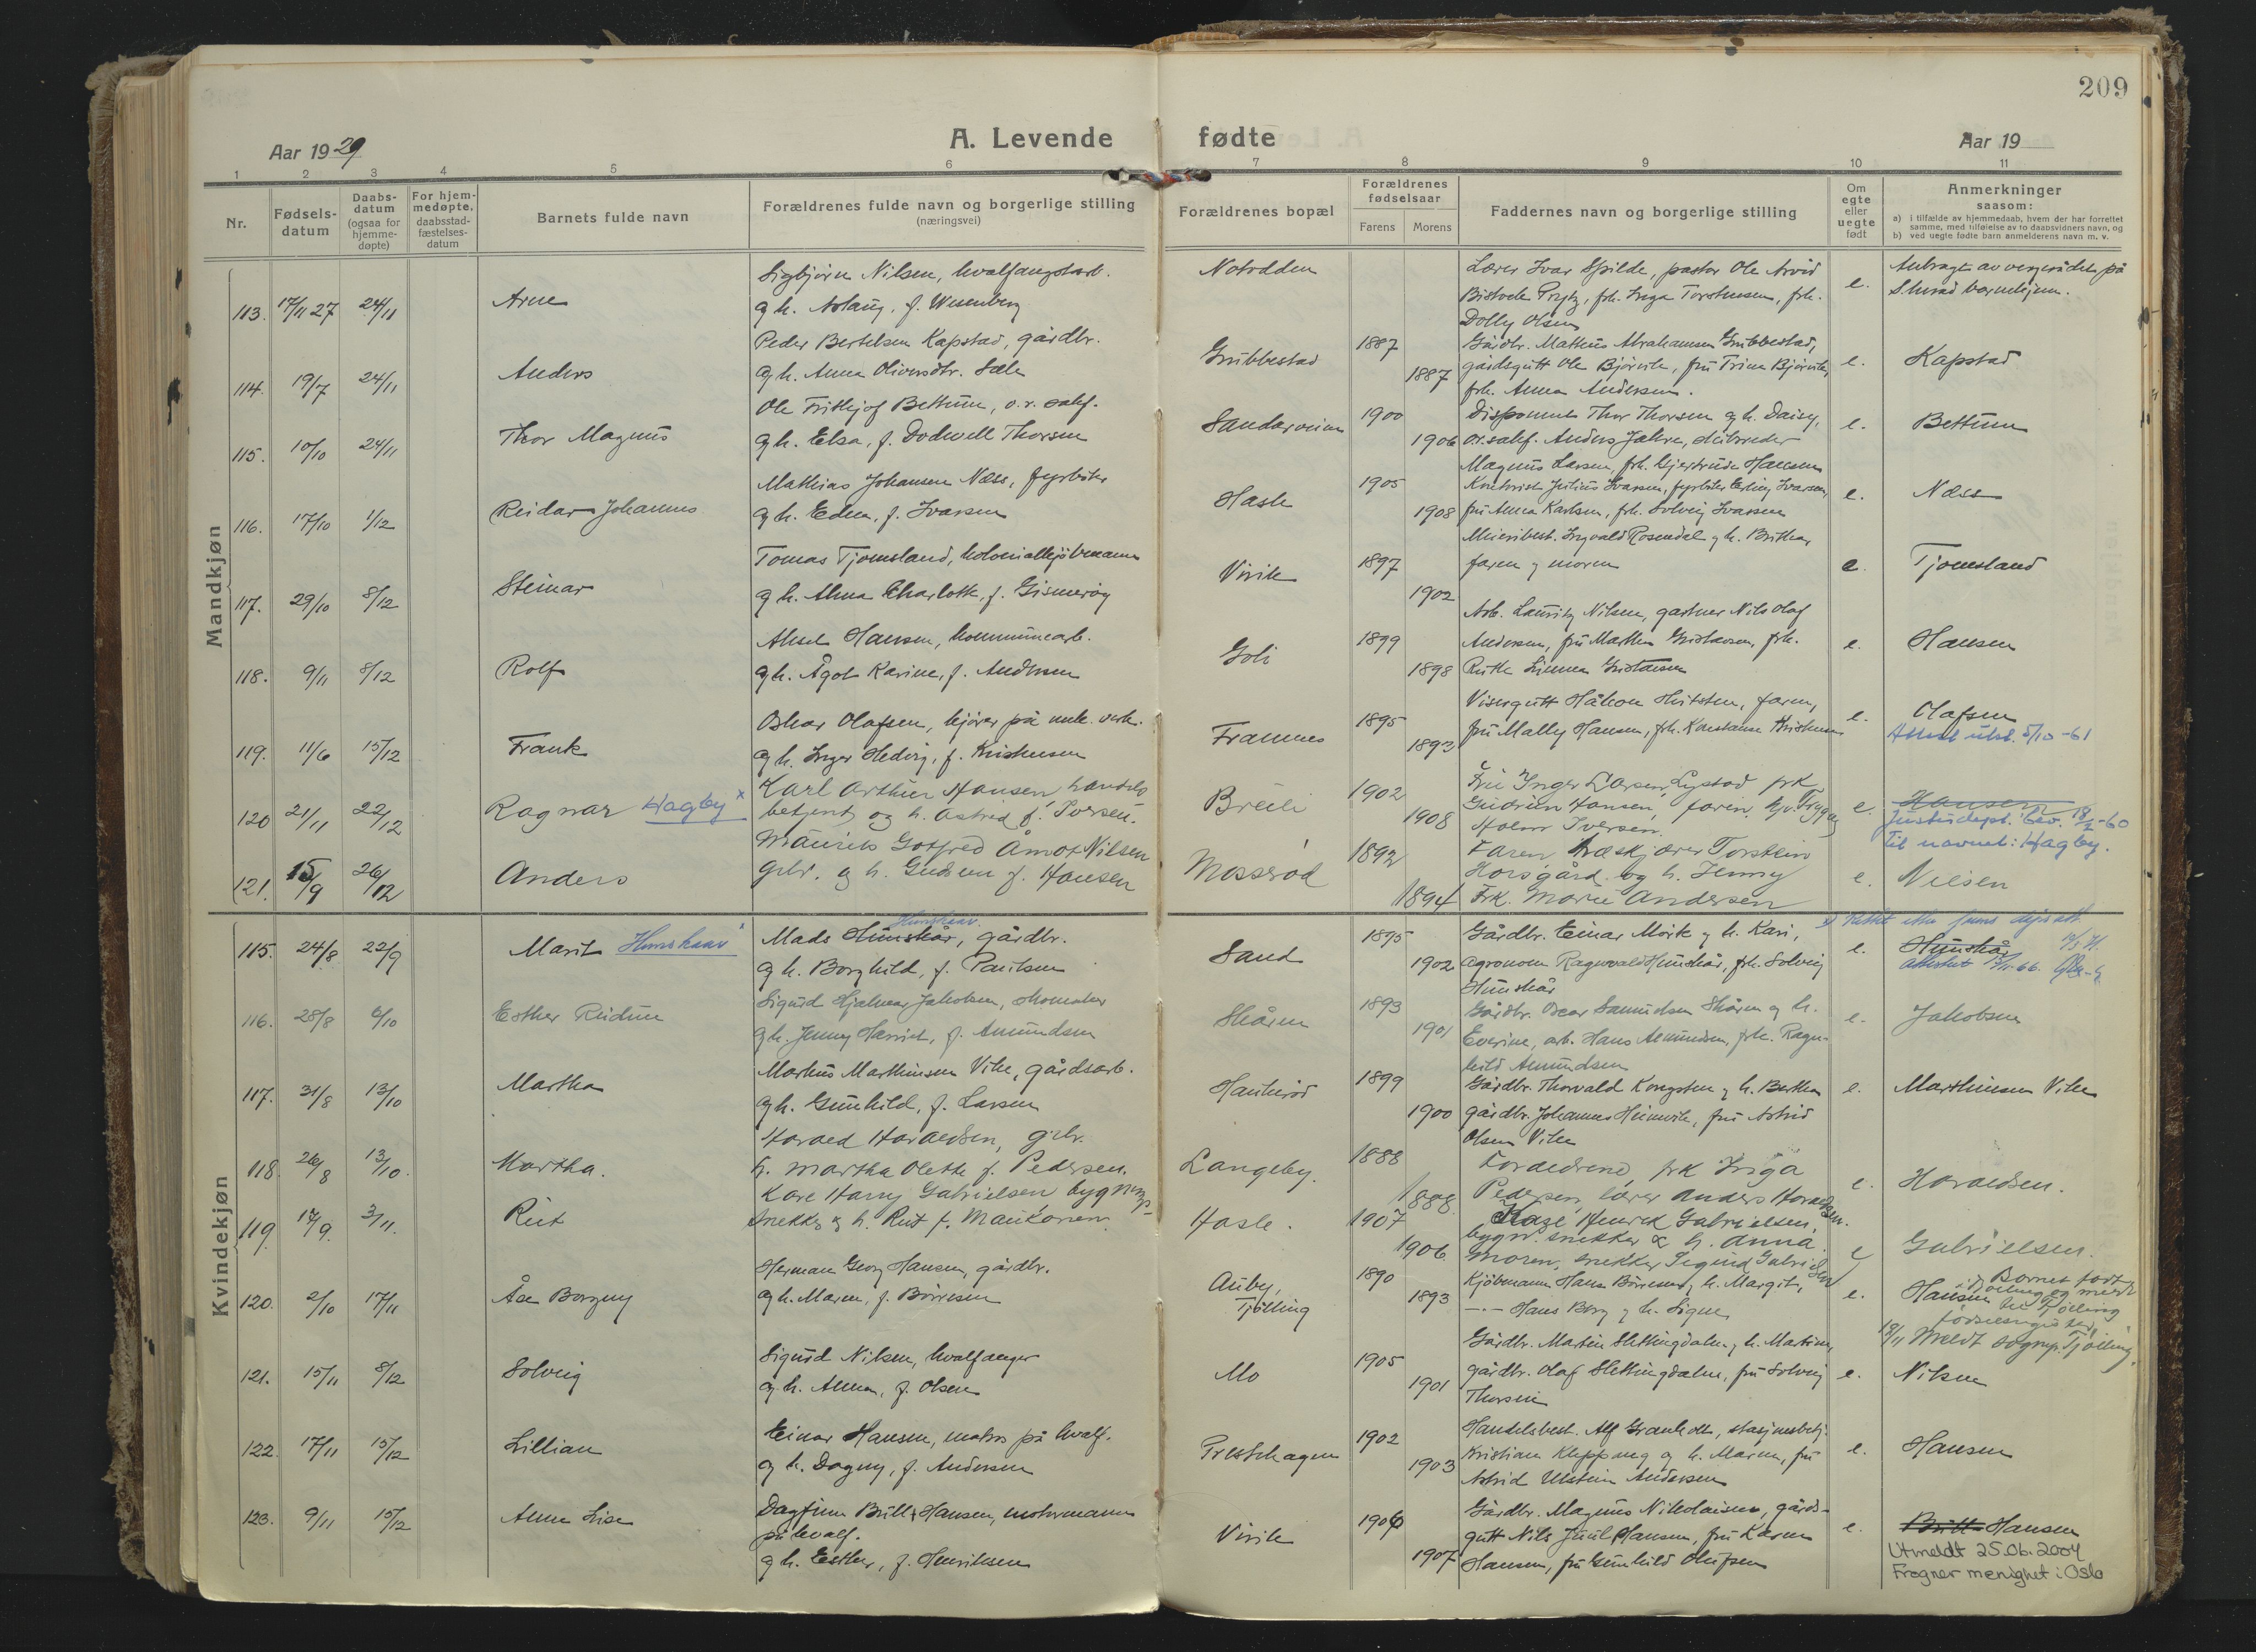 209
A. Levende fødte
Aar 1929
Aar 19
1 2 3 4 5 6 7 8 9 10 11
Nr.
Fødsels-
datum
Daabs-
datum
(ogsaa for
hjemme-
døpte)
For hjem-
medøpte,
daabsstad-
fæstelses-
datum
Barnets fulde navn
Forældrenes fulde navn og borgerlige stilling
(næringsvei)
Forældrenes bopæl
Forældrenes
fødselsaar
Farens Morens
Faddernes navn og borgerlige stilling
Om
egte
eller
uegte
født
Anmerkninger
saasom:
a) i tilfælde av hjemmedaab, hvem der har forrettet
samme, med tilføielse av to daabsvidners navn, og
b) ved uegte fødte barn anmelderens navn m. v.
Mandkjøn
113. 17/11 27 24/11 Arne
Sigbjørn Nilsen, hvalfangstarb.
og h. Aslaug, f. Wesenberg
Notodden
Lærer Ivar Spilde, pastor Ole Arvid
Bistvek Prytz, frk. Inga Torstensen, frk.
Dolly Olsen
e.
Anbragt av vergerådet på
S.herad barnehjem.
114. 19/7 24/11 Anders
Peder Bertelsen Kapstad, gårdbr.
og h. Anna Oliversdtr. Sæle
Grubbestad
1887
1887
Gårdbr. Mathias Abrahamsen Grubbestad,
gårdsgutt Ole Bjørvik, fru Trine Bjørvik,
frk. Anna Andersen.
e.
Kapstad
115. 10/10 24/11 Thor Magnus
Ole Fritjof Bettum, o.r. sakf.
og h. Elsa, f. Dodwell Thorsen
Sandarveien
1900
1906
Disponent Thor Thorsen og h. Daisy,
o.r.sakf. Anders Jahre, skibsreder
Magnus Larsen, frk. Gjertrude Hansen
e.
Bettum
116. 17/10 1/12 Reidar Johannes
Mathias Johansen Næss, fyrbøter
og h. Edna, f. Ivarsen
Hasle
1905
1908
Kontorist Julius Ivarsen, fyrbøter Erling Ivarsen,
fru Anna Karlsen, frk. Solveig Ivarsen
e.
Næss
117. 29/10 8/12 Steinar
Tomas Tjomsland, kolonialkjøbmann
og h. Alma Charlotte, f. Gismerøy
Virik
1897
1902
Meieribest. Ingvald Rosendal og h. Birthea,
faren og moren
e.
Tjomsland
118. 9/11 8/12 Rolf
Aksel Hansen, kommunearb.
og h. Ågot Karine, f. Andersen
Goli
1899
1898
Arb. Lauritz Nilsen, gartner Nils Olaf
Andersen, fru Marthea Gustavsen, frk.
Ruth Linnea Gustavsen
e.
Hansen
119. 11/6 15/12 Frank
Oskar Olafsen, kjører på mek. verk.
og h. Inger Hedvig, f. Kristensen
Framnes
1895
1893
Visergutt Håkon Kristensen, faren,
fru Mally Hansen, frk. Konstanse Kristensen
e.
Olafsen
Attest utst. 5/10-61
120 21/11 22/12 Ragnar Hagby x
Karl Arthur Hansen handels
betjent og h. Astrid f. Iversen.
Breili
1902
1908
Fru Inger Larsen, Lystad frk
Gudrun Hansen, faren, Trygve
Holm Iversen.
e.
Hansen
Justisdept. bev. 18/2-60
til navnet: Hagby.
121. 15/9 26/12 Anders
Maurits Gotfred Åmot Nilsen
grbr. og h. Gudrun f. Hansen
Mosserød
1892
1894
Faren Hvalskjærer Torstein
Horsgård og h. Jenny
Frk. Marie Andersen
e.
Nilsen
Kvindekjøn
115. 24/8 22/9 Marit Hunskaar x
Hunskaar
Mads Hunskår, gårdbr.
og h. Borghild, f. Paulsen
Sand
1895
1902
Gårdbr. Einar Mørk og h. Kari,
agronom Ragnvald Hunskår, frk. Solveig
Hunskår
e.
x) Rettet efter
Hunskår
116. 28/8 6/10 Esther Reidun
Sigurd Hjalmar Jakobsen, skomaker
og h. Jenny Harriet, f. Amundsen
Skåren
1893
1901
Gårdbr. Oscar Samuelsen Skåren og h.
Everine, arb. Hans Amundsen, frk. Ragn-
hild Amundsen
e.
Jakobsen
117. 31/8 13/10 Martha
Markus Marthinsen Vike, gårdsarb.
og h. Gunhild, f. Larsen
Haukerød
1899
1900
Gårdbr. Thorvald Kongsten og h. Berthea
gårdbr. Johannes Heimvik, fru Astrid
Olsen Viken
e.
Marthinsen Vike
118. 26/8 13/10. Martha.
Harald Haraldsen, grbr.
h. Martha Olette f. Pedersen.
Langeby.
1888
1888
Foreldrene, frk Inga
Pedersen, lærer Anders Haraldsen.
e.
Haraldsen.
119 17/9. 3/11. Rut
Kåre Harry Gabrielsen bygnings-
snekker & h. Rut f. Maukonen.
Hasle.
1907
1906
Kage Henrik Gabrielsen,
bygn. snekker & h. Anna.
Moren, snekker Sigurd Gabrielsen
e
Gabrielsen.
120. 2/10 17/11 Åse Borgny
Herman Georg Hansen, gårdbr.
og h. Maren, f. Børresen
Auby,
Tjølling
1890
1893
Kjøbmann Hans Børresen og h. Margit,
—„— Hans Berg og h. Signe
e.
Hansen
Barnet født
i Tjølling og meldt
til Tjølling
fødselsregister.
18/11 Meldt sognepr. Tjølling.
121. 15/11 8/12 Solveig
Sigurd Nilsen, hvalfanger
og h. Anna, f. Olsen
Mo
1905
1901
Gårdbr. Martin Slettingdalen og h. Martine,
gårdbr. Olaf Slettingdalen, fru Solveig
Thorsen
e.
Nilsen
122. 17/11 15/12 Lillian
Einar Hansen, matros på hvalf.
og h. Dagny, f. Andersen
Prestehagen
1902
1903
Handelsbest. Alf Granholt, stasjonsbetj.
Kristian Kleppaneg og h. Maren, fru
Astrid Ulstein Andersen
e.
Hansen
123. 9/11 15/12 Anne Lise
Dagfinn Britt Hansen, motormann
på hvalf.
og h. Esther, f. Henriksen
Virik
1906
1907
Gårdbr. Magnus Nikolaisen, gårds-
gutt Nils Juul Hansen, fru Karen
Hansen, fru Gunhild Olufsen
e.
Britt Hansen
Utmeldt 25.06.2004
Frogner menighet i Oslo